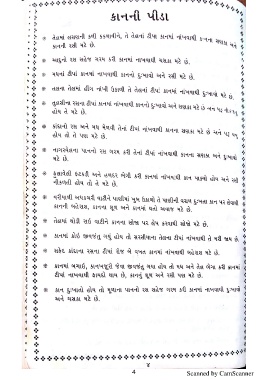 કાનની પીડા
તેલમાં લસણની કળી કકળાવીને, તે તેલનાં ટીપાં કાનમાં નાખવાથી કાનના સણકા અને
કાનની રસી મટે છે.
આદુનો રસ સહેજ ગરમ કરી કાનમાં નાખવાથી ચસકા મટે છે.
મધનાં ટીપાં કાનમાં નાખવાથી કાનનો દુઃખાવો અને રસી મટે છે.
તલના તેલમાં હીંગ નાંખી ઉકાળી તે તેલનાં ટીપાં કાનમાં નાંખવાથી દુઃખાવો મટે છે.
તુલસીના રસનાં ટીપાં કાનમાં નાંખવાથી કાનનો દુઃખાવો અને સણકા મટે છે
હોય તે મટે છે.
કાંદાનો રસ અને મધ મેળવી તેનાં ટીપાં કાનમાં નાંખવાથી કાનના સણકા મટે છે અને પરૂ
હોય તો તે પણ મટે છે.
નાગરવેલના પાનનો રસ ગરમ કરી તેનાં ટીપાં કાનમાં નાંખવાથી કાનના સણકા અને દુઃખાવો
મટે છે.
ફુલાવેલી ફટકડી અને હળદર ભેગી કરી કાનમાં નાંખવાથી કાન પાક્યો હોય અને રસી
નીકળતી હોય તો તે મટે છે.
વરીયાળી અધકચરી વાટીને પાણીમાં ખૂબ ઉકાળી તે પાણીની વરાળ દુઃખતા કાન પર લેવાથી
કાનની બહેરાશ, કાનના શૂળ અને કાનમાં થતો અવાજ મટે છે.
તેલમાં થોડી રાઈ વાટીને કાનના સોજા પર લેપ કરવાથી સોજો મટે છે.
કાનમાં કોઈ જીવજંતુ ગયું હોય તો સરસીયાના તેલના ટીપાં નાંખવાથી તે મરી જાય છે.
સફેદ કાંદાના રસના ટીપાં રોજ બે વખત કાનમાં નાંખવાથી બહેરાશ મટે છે.
કાનમાં બગાઈ, કાનખજૂરો જેવા જીવજંતુ ગયા હોય તો મધ અને તેલ ભેગા કરી કાનમાં
ટીપાં નાખવાથી ફાયદો થાય છે, કાનનું શૂળ અને રસી પણ મટે છે.
કાન દુઃખતો હોય તો મૂળાના પાનનો રસ સહેજ ગરમ કરી કાનમાં નાખવાથી દુઃખાવો
અને ચસકા મટે છે.
૪
4
Scanned by CamScanner